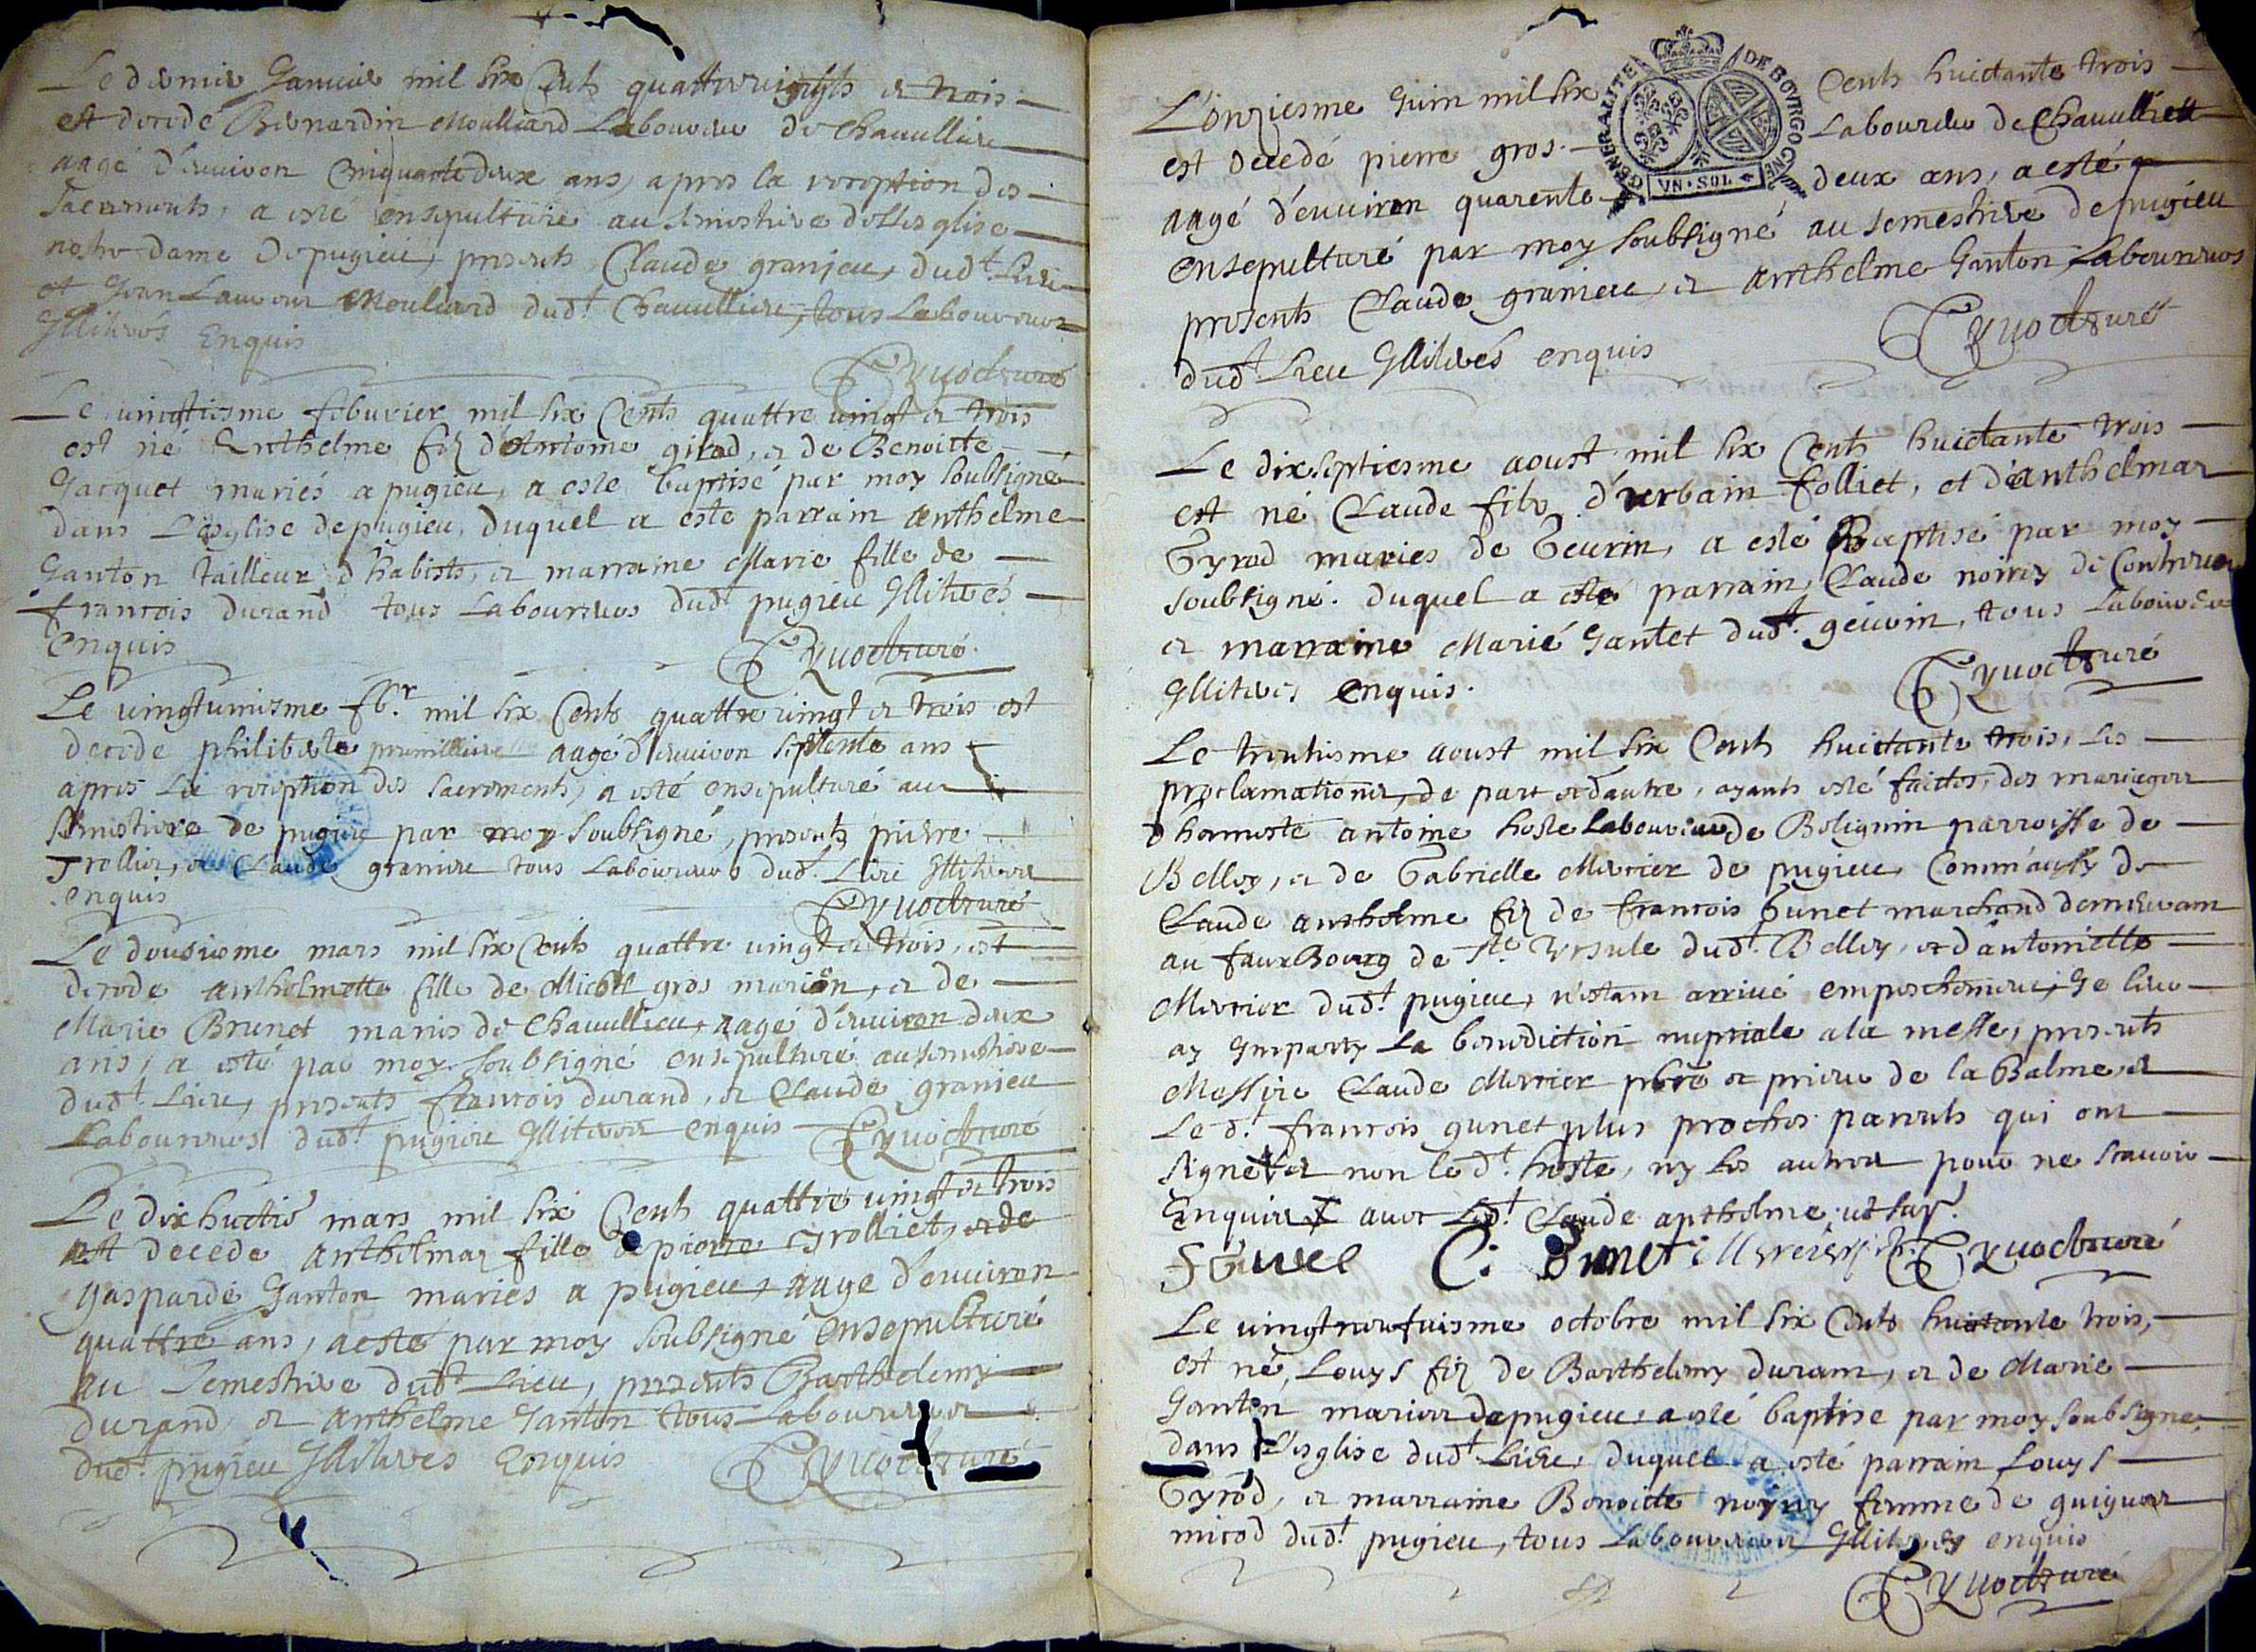 Le dernier Januier mil six Cents quattreuingts et trois
est decedé Bernardin Moulliard Laboureur de Chauullieu
aagé d'enuiron Cinquante deux ans, apres la reception des
Sacrements, a esté ensepulturé au semestiere de l'esglise
nostre dame de pugieu, presents Claude granjeu, dud.t Lieu
et Jean Moulliard dud.t Chauullieu, tous Laboureurs
Jlliteres Enquis
Le uingtiesme feburier mil six Cents quattre uingt et trois
est né Anthelme fiz d'Antoine girod, et de Benoitte
Jacquet mariés a pugieu, a esté baptisé par moy soubsigné
dans L'esglise de pugieu, duquel a esté parrain Anthelme
Ganton tailleur d'habists, et marraine Marie fille de
francois durand tous Laboureurs dud.t pugieu Jlliteres
Enquis
Le uingtunisme fb.r mil six Cents quattre uingt et trois est
decede philiberte aagé d'enuiron septente ans
apres la reception des sacrements, a esté ensepulturé au
semestiere de pugieu par moy soubsigné, presents pierre
Trollier, et Claude granieu tous Laboureurs dud.t Lieu Jlliteres
enquis
Le dousiesme mars mil six Cents quattre uingt et trois, est
decede anthelmette fille de Micol gros et de
Marie Brunet mariés de Chauullieu, aagé d'enuiron deux
ans, a esté par moy soubsigné ensepulturé au semestiere
dud.t Lieu, presents francois durand, et Claude granieu
Laboureurs dud.t pugieu Jlliteres enquis
Le dixhuctie mars mil six Cents quattre uingt et trois
est decede anthelmaz fille de pierre Trolliet, et de
gasparde Ganton mariés a pugieu, aage d'enuiron
quattre ans, a esté par moy soubsigné ensepulturé
au semestiere dud.t Lieu, presents Barthelemy
durand et anthelme Ganton tous Laboureurs
dud.t pugieu Jlliteres Enquis
L'onziesme Juin mil six Cents huictante trois
GENERALITE DE BOVRGOGNE
VN·SOL
est decedé pierre gros Laboureur de Chauullieu
aagé d'enuiron quarente deux ans, a esté
ensepulturé par moy soubsigné au semestiere de pugieu
presents Claude granieu, et anthelme Ganton Laboureurs
dud.t Lieu Jlliteres enquis
Le dixseptiesme aoust mil six Cents huictante trois
est né Claude filz d'urbain folliet, et d'anthelmaz
Gyrod mariés de Geurin, a esté Baptisé par moy
soubsigné. duquel a esté parrain, Claude de Contreuoz
et marraine Marie Gantet dud.t geuvin, tous Laboureurs
Jlliteres enquis.
Le trentisme aoust mil six Cents huictante trois, les
proclamations, de part et d'autre, ayants esté faictes, des mariages
d'honneste antoine hoste Laboureur de Bolignin parroisse de
Belley, et de Gabrielle Mercier de pugieu, Comm'aussy de
Claude anthelme fiz de francois Gunet marchand demeurant
au fauxBourg de S.te Ursule dud.t Belley, et d'antoinette
Mercier dud.t pugieu, n'estant arriué empeschement, Je leur
ay Jmparty La benediction nuptiale a la messe, presents
Messire Claude Mercier pbre et prieur de la Balme, et
Le d.t francois gunet plus proches parents qui ont
signé et non le d.t hoste, ny les autres pour ne scauoir
Enquis auec led.t Claude anthelme
Le uingtneufuisme octobre mil six Cents huictante trois,
est né, Louys fiz de Barthelemy durant, et de Marie
Ganton mariés de pugieu, a esté baptise par moy soubsigné,
dans L'esglise dud.t Lieu, duquel a esté parrain Louys
Gyrod, et marraine Benoitte femme de
micod dud.t pugieu, tous Laboureurs Jlliteres enquis